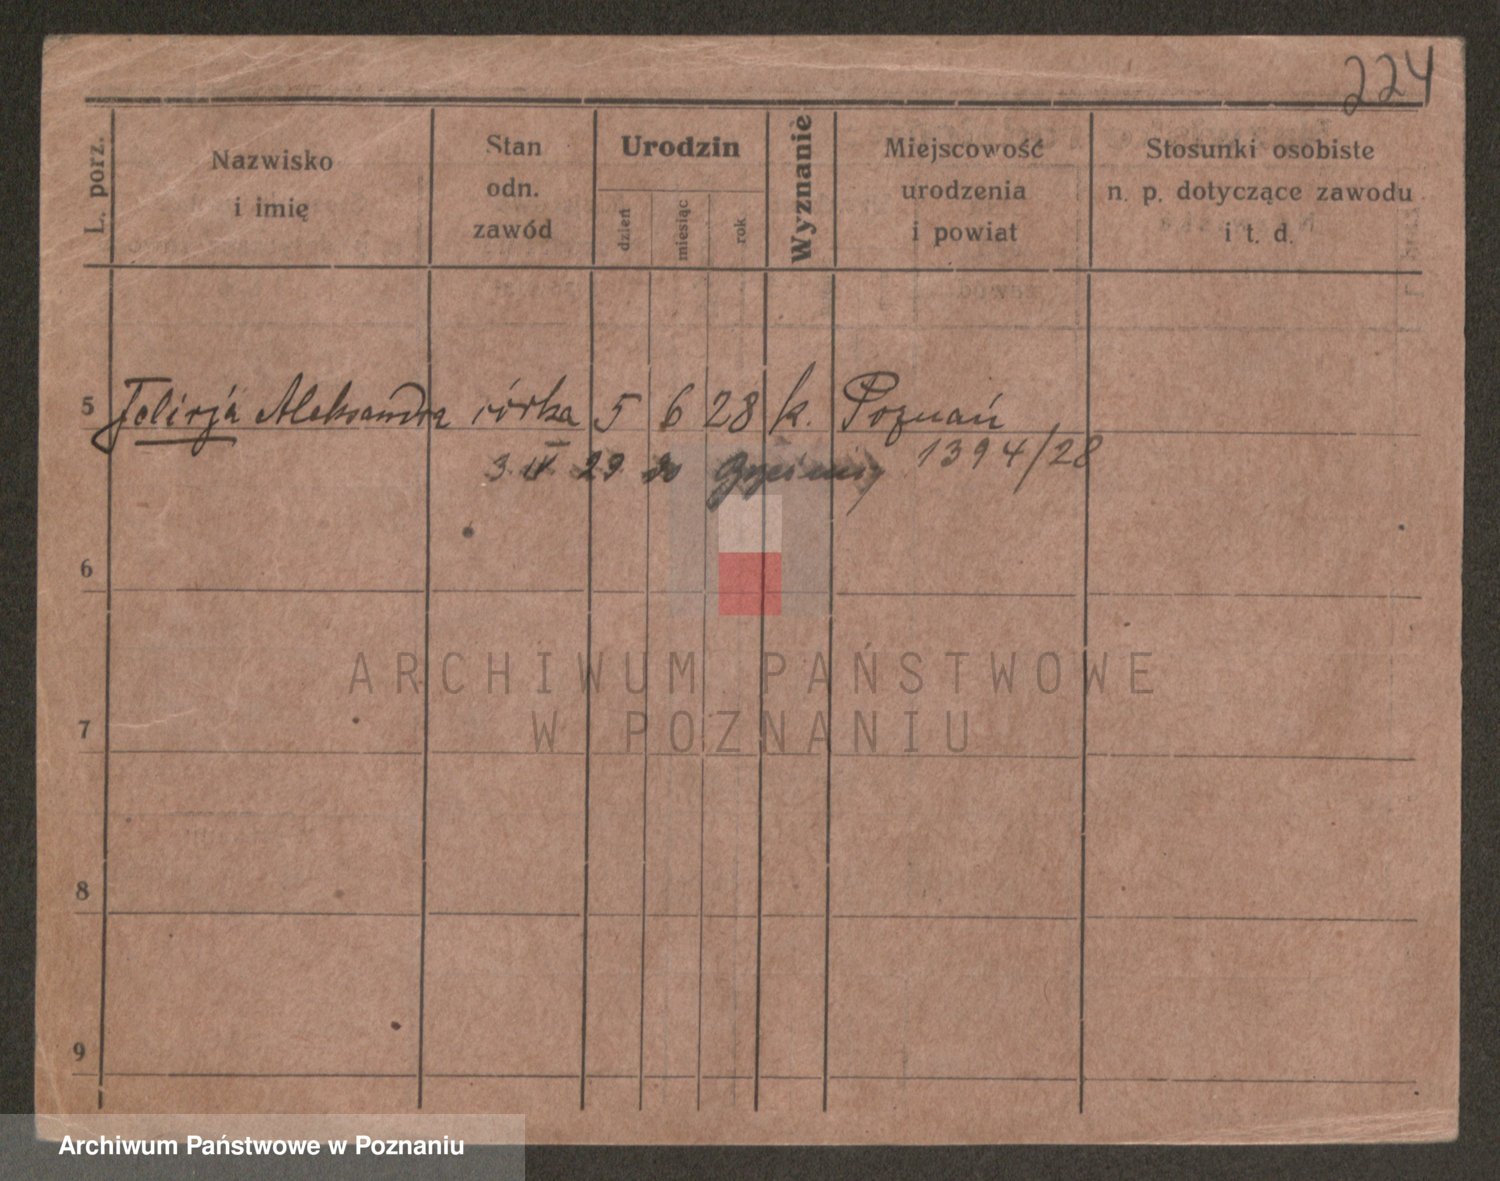 224
L. porz.
Nazwisko
i imię
Stan
odn.
zawód
Urodzin
dzień
miesiąc
rok
Wyznanie
Miejscowość
urodzenia
i powiat
Stosunki osobiste
n. p. dotyczące zawodu
i t. d.
5 Felicja Aleksandra córka 5 6 28 k. Poznań
29 1394/28
6
ARCHIWUM PAŃSTWOWE
W POZNANIU
7
8
9
Archiwum Państwowe w Poznaniu